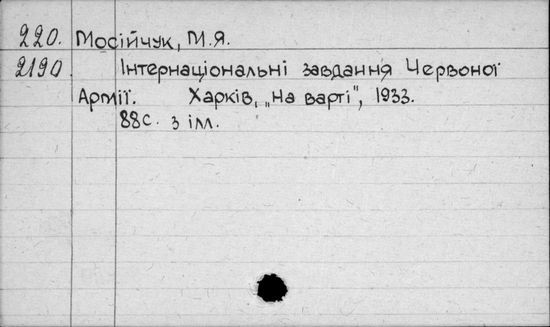 220. Мосійчук, М.Я.
2190. Інтернаціональні завдання Червоної
Армії. Харків, „На варті", 1933.
88с. з ілл.